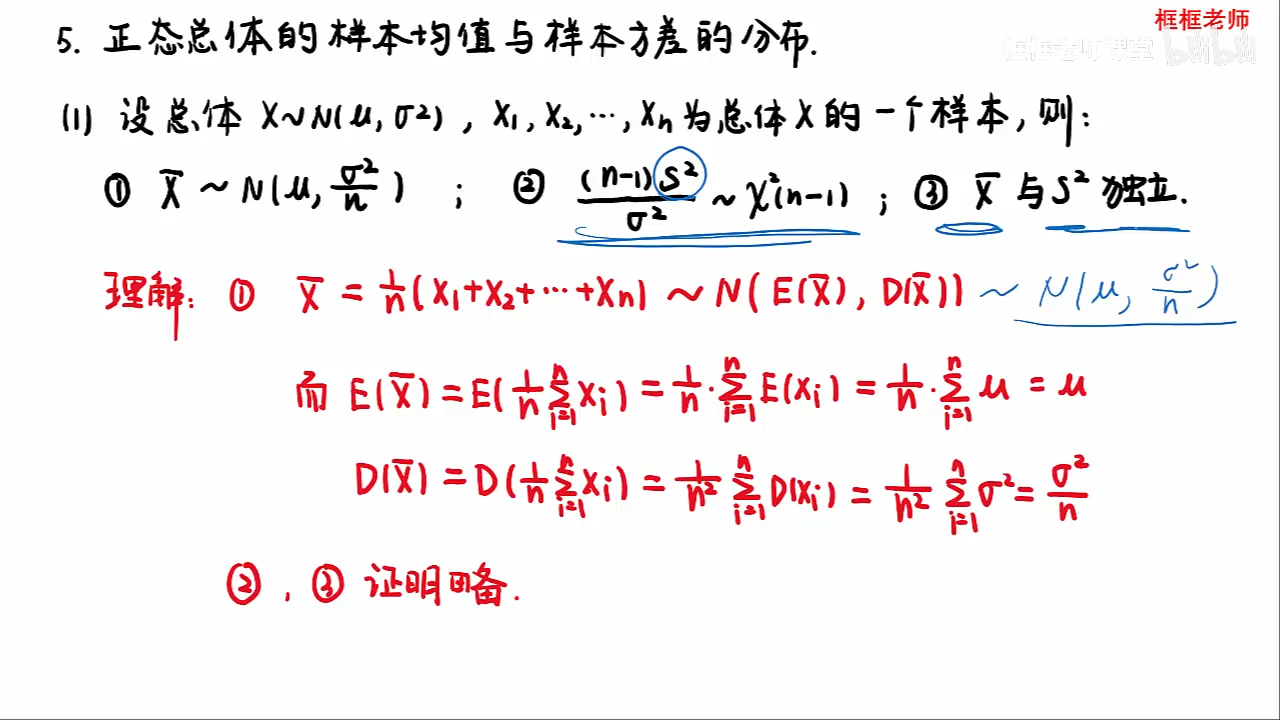 框框老师
框框老师课堂 bilibili
5. 正态总体的样本均值与样本方差的分布.
(1) 设总体 X~N(μ, σ²), X₁, X₂, ⋯, Xₙ 为总体 X 的一个样本, 则:
① X̄ ~ N(μ, σ²/n) ; ② (n-1)S²/σ² ~ χ²(n-1) ; ③ X̄ 与 S² 独立.
理解: ① X̄ = 1/n(X₁+X₂+⋯+Xₙ) ~ N(E(X̄), D(X̄)) ~ N(μ, σ²/n)
而 E(X̄) = E(1/n ∑ⁿᵢ₌₁ Xᵢ) = 1/n · ∑ⁿᵢ₌₁ E(Xᵢ) = 1/n · ∑ⁿᵢ₌₁ μ = μ
D(X̄) = D(1/n ∑ⁿᵢ₌₁ Xᵢ) = 1/n² ∑ⁿᵢ₌₁ D(Xᵢ) = 1/n² ∑ⁿᵢ₌₁ σ² = σ²/n
②, ③ 证明略.